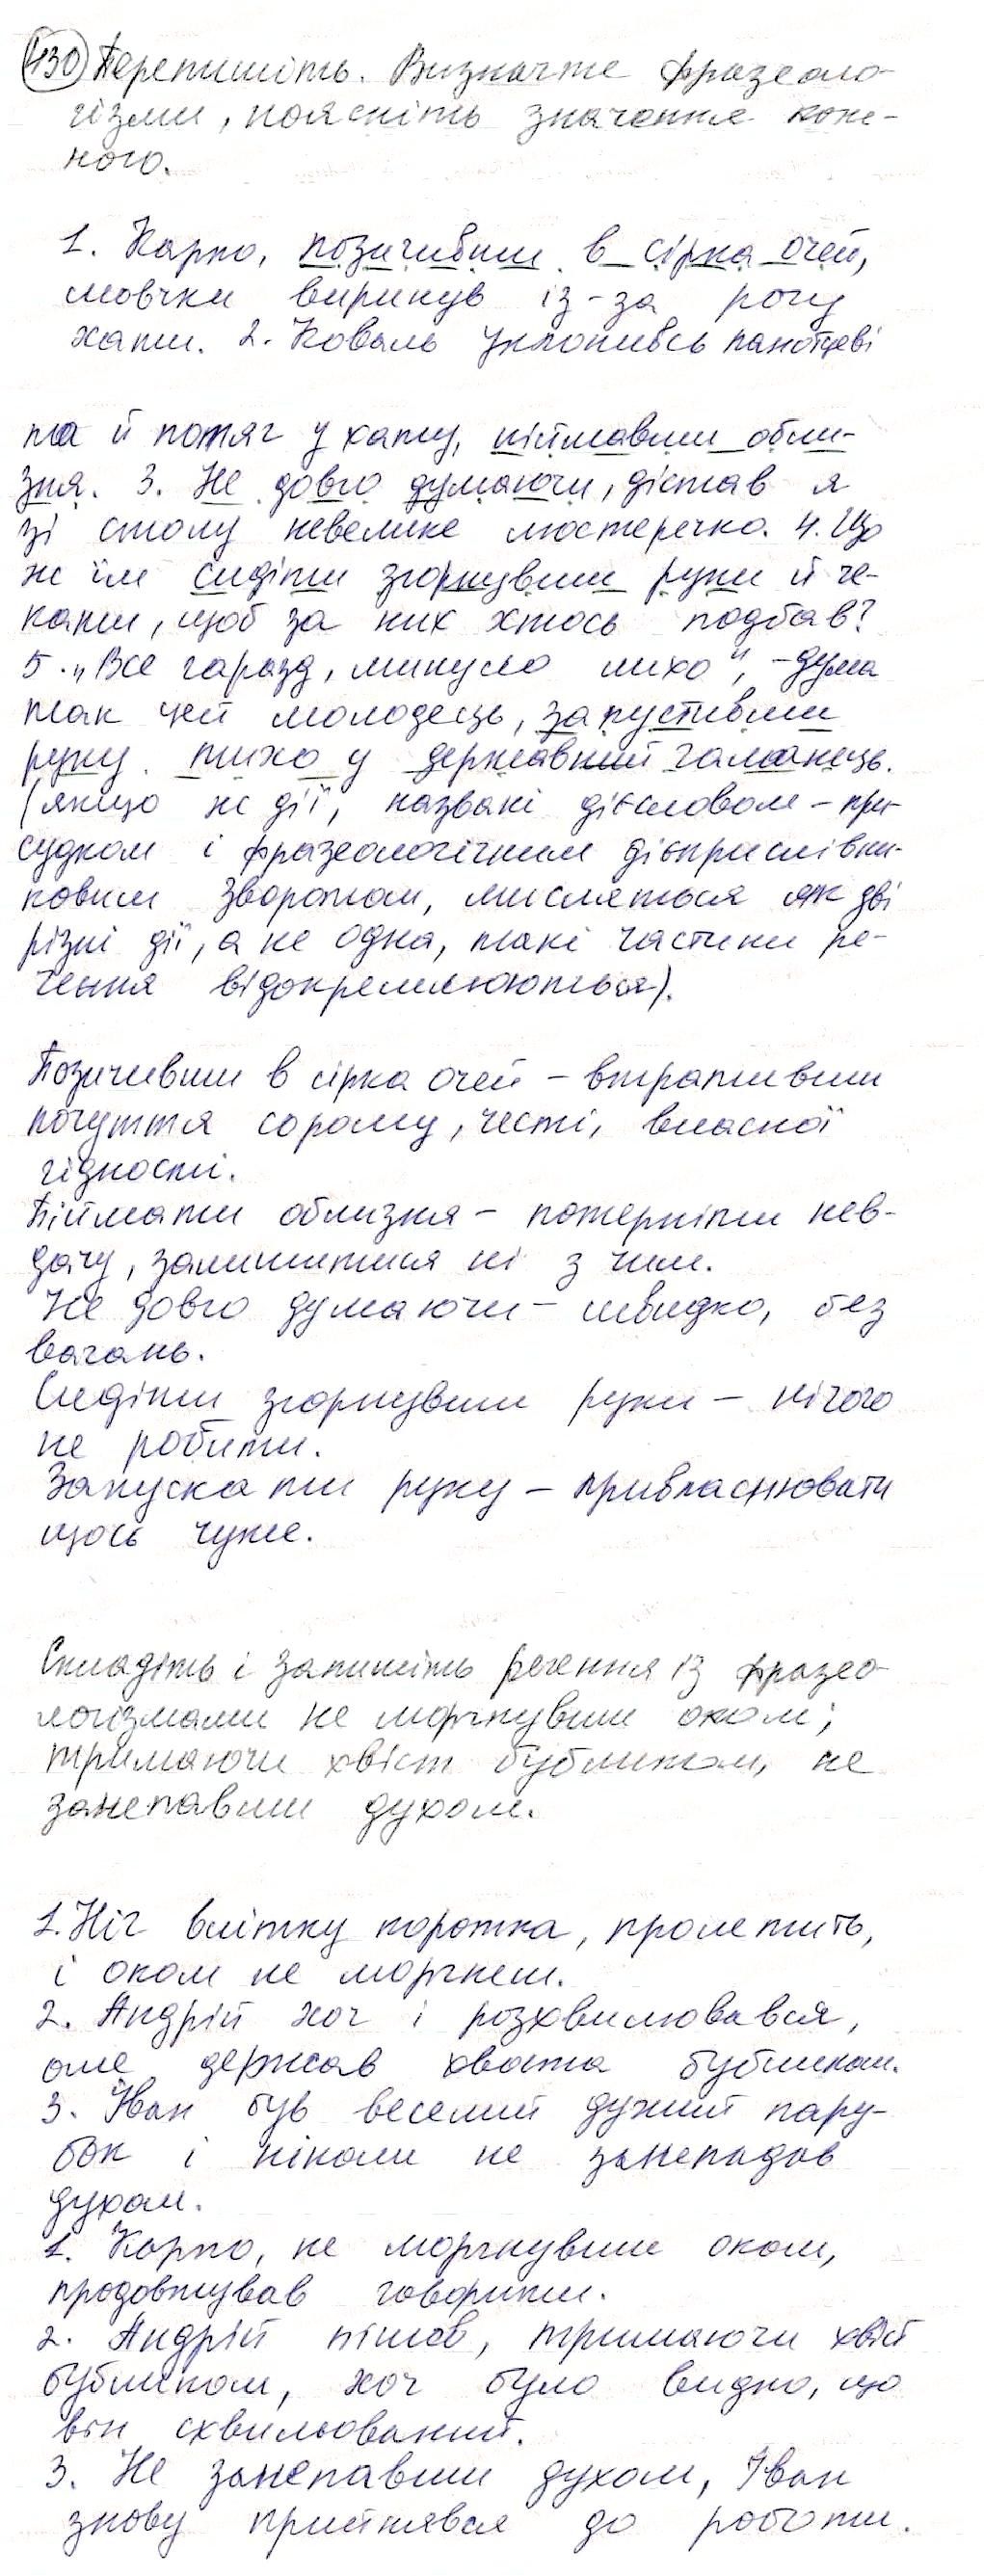 430 Перепишіть. Визначте фразеоло-
гізми, поясніть значення кож-
ного.
1. Карпо, позичивши в сірка очей,
мовчки виринув із-за рогу
хати. 2. Коваль уклонивсь панотцеві
та й потяг у хату, піймавши обли-
зня. 3. Не довго думаючи, дістав я
зі столу невелике люстеречко. 4. Що
ж їм сидіти згорнувши руки й че-
кати, щоб за них хтось подбав?
5. „Все гаразд, минуло лихо", - дума
так цей молодець, запустивши
руку тихо у державний гаманець.
(якщо ж дії, названі дієсловом - при-
судком і фразеологічним дієприслівни-
ковим зворотом, мисляться як дві
різні дії, а не одна, такі частини ре-
чення відокремлюються).
Позичивши в сірка очей - втративши
почуття сорому, честі, власної
гідності.
Піймати облизня - потерпіти нев-
дачу, залишитися ні з чим.
Не довго думаючи - швидко, без
вагань.
Сидіти згорнувши руки - нічого
не робити.
Запускати руку - привласнювати
щось чуже.
Складіть і запишіть речення із фразео-
логізмами не моргнувши оком;
тримаючи хвіст бубликом, не
занепавши духом.
1. Ніч влітку коротка, пролетить,
і оком не моргнеш.
2. Андрій хоч і розхвилювався,
але держав хвоста бубликом.
3. Іван був веселий дужий пару-
бок і ніколи не занепадав
духом.
1. Карпо, не моргнувши оком,
продовжував говорити.
2. Андрій пішов, тримаючи хвіст
бубликом, хоч було видно, що
він схвильований.
3. Не занепавши духом, Іван
знову прийнявся до роботи.